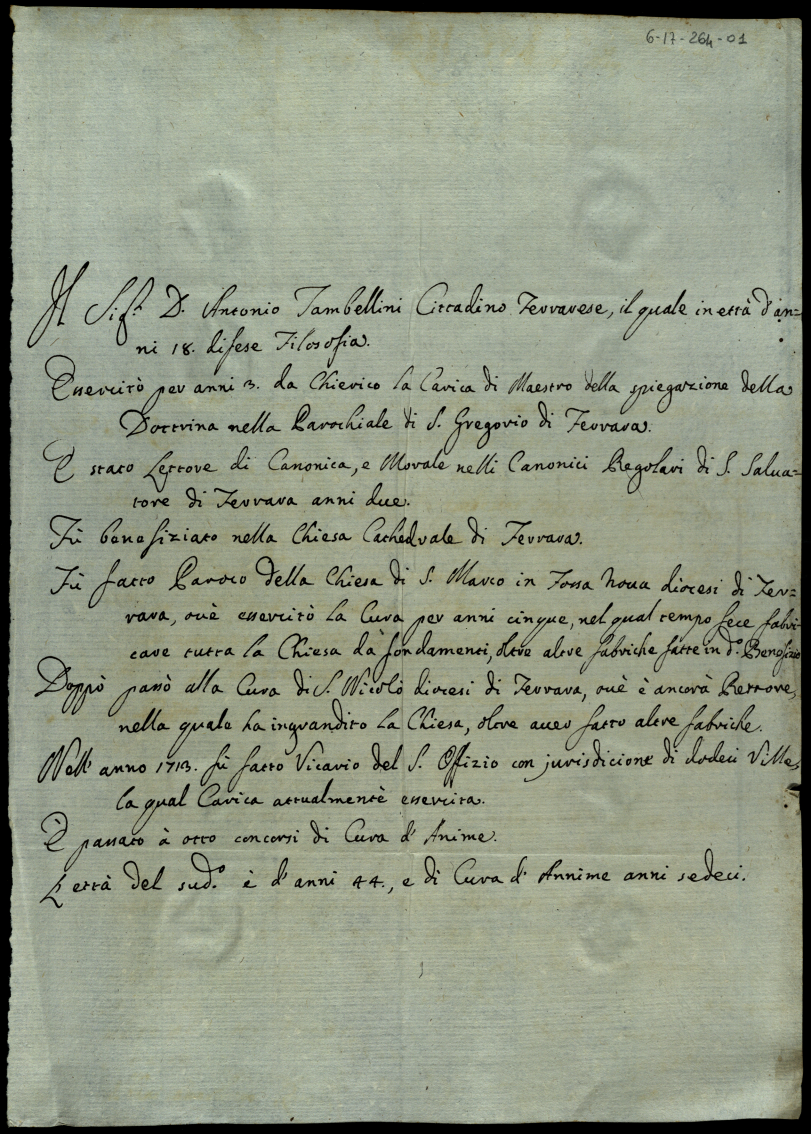 6-17-264-01
Il Sig.r D. Antonio Tambellini Cittadino Ferrarese, il quale in ettà d'an=
ni 18. difese Filosofia.
Essercitò per anni 3. da Chierico la Carica di Maestro della spiegazione della
Dottrina nella Parochiale di S. Gregorio di Ferrara.
È stato Lettore di Canonica, e Morale nelli Canonici Regolari di S. Salua=
tore di Ferrara anni due.
Fù benefiziato nella Chiesa Cathedrale di Ferrara.
Fù fatto Paroco della Chiesa di S. Marco in Fossa Noua diocesi di Fer=
rara, ouè essercitò la Cura per anni cinque, nel qual tempo fece fabri=
care tutta la Chiesa dà fondamenti, oltre altre fabriche fatte in d.o Benefizio
Doppò passò alla Cura di S. Nicolò diocesi di Ferrara, ouè è ancorà Rettore,
nella quale ha ingrandito la Chiesa, oltre auer fatto altre fabriche.
Nell'anno 1713. fù fatto Vicario del S. Offizio con jurisdicione di dodeci Ville,
la qual Carica attualmentè essercita.
È passato à otto concorsi di Cura d'Anime.
L'ettà del sud.o è d'anni 44., e di Cura d'Annime anni sedeci.